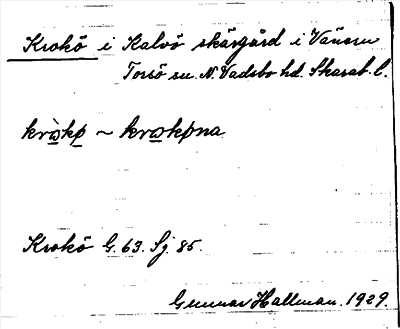 Krokö i Kalvö skärgård i Vänern
Torsö sn. N. Vadsbo hd. Skarab. l.
krɷ̀kø ~ krɷkøna
Krokö G. 63. Sj. 85.
Gunnar Hallman. 1929.